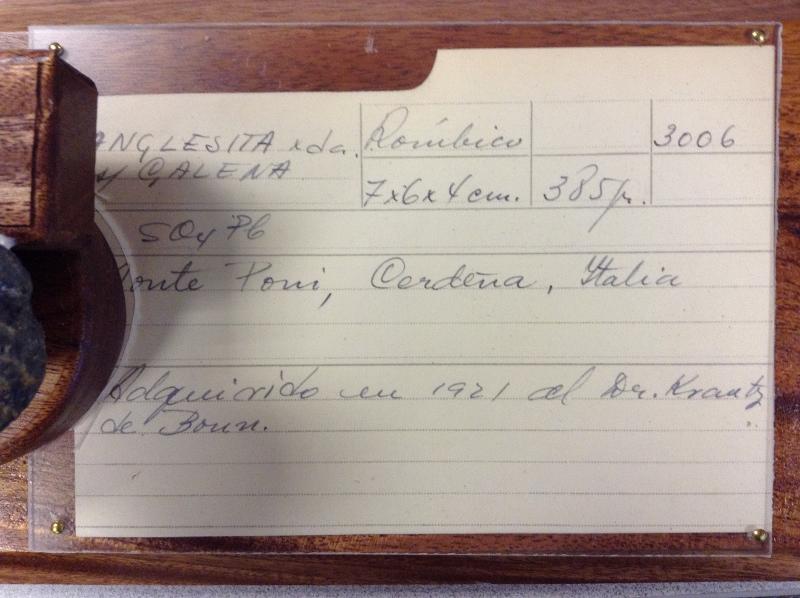 ANGLESITA xda. Rómbico 3006
s/ GALENA 7x6x4 cm. 385 gr.
SO4 Pb
Monte Poni, Cerdeña, Italia
Adquirido en 1921 al Dr. Krantz
de Bonn.